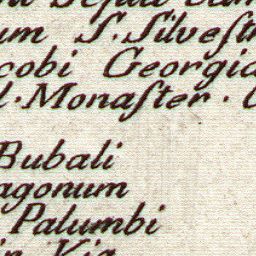 um S. Silvest
cobi Georgia
l. Monaster. C
Bubali
agonum
Palumbi
in Via